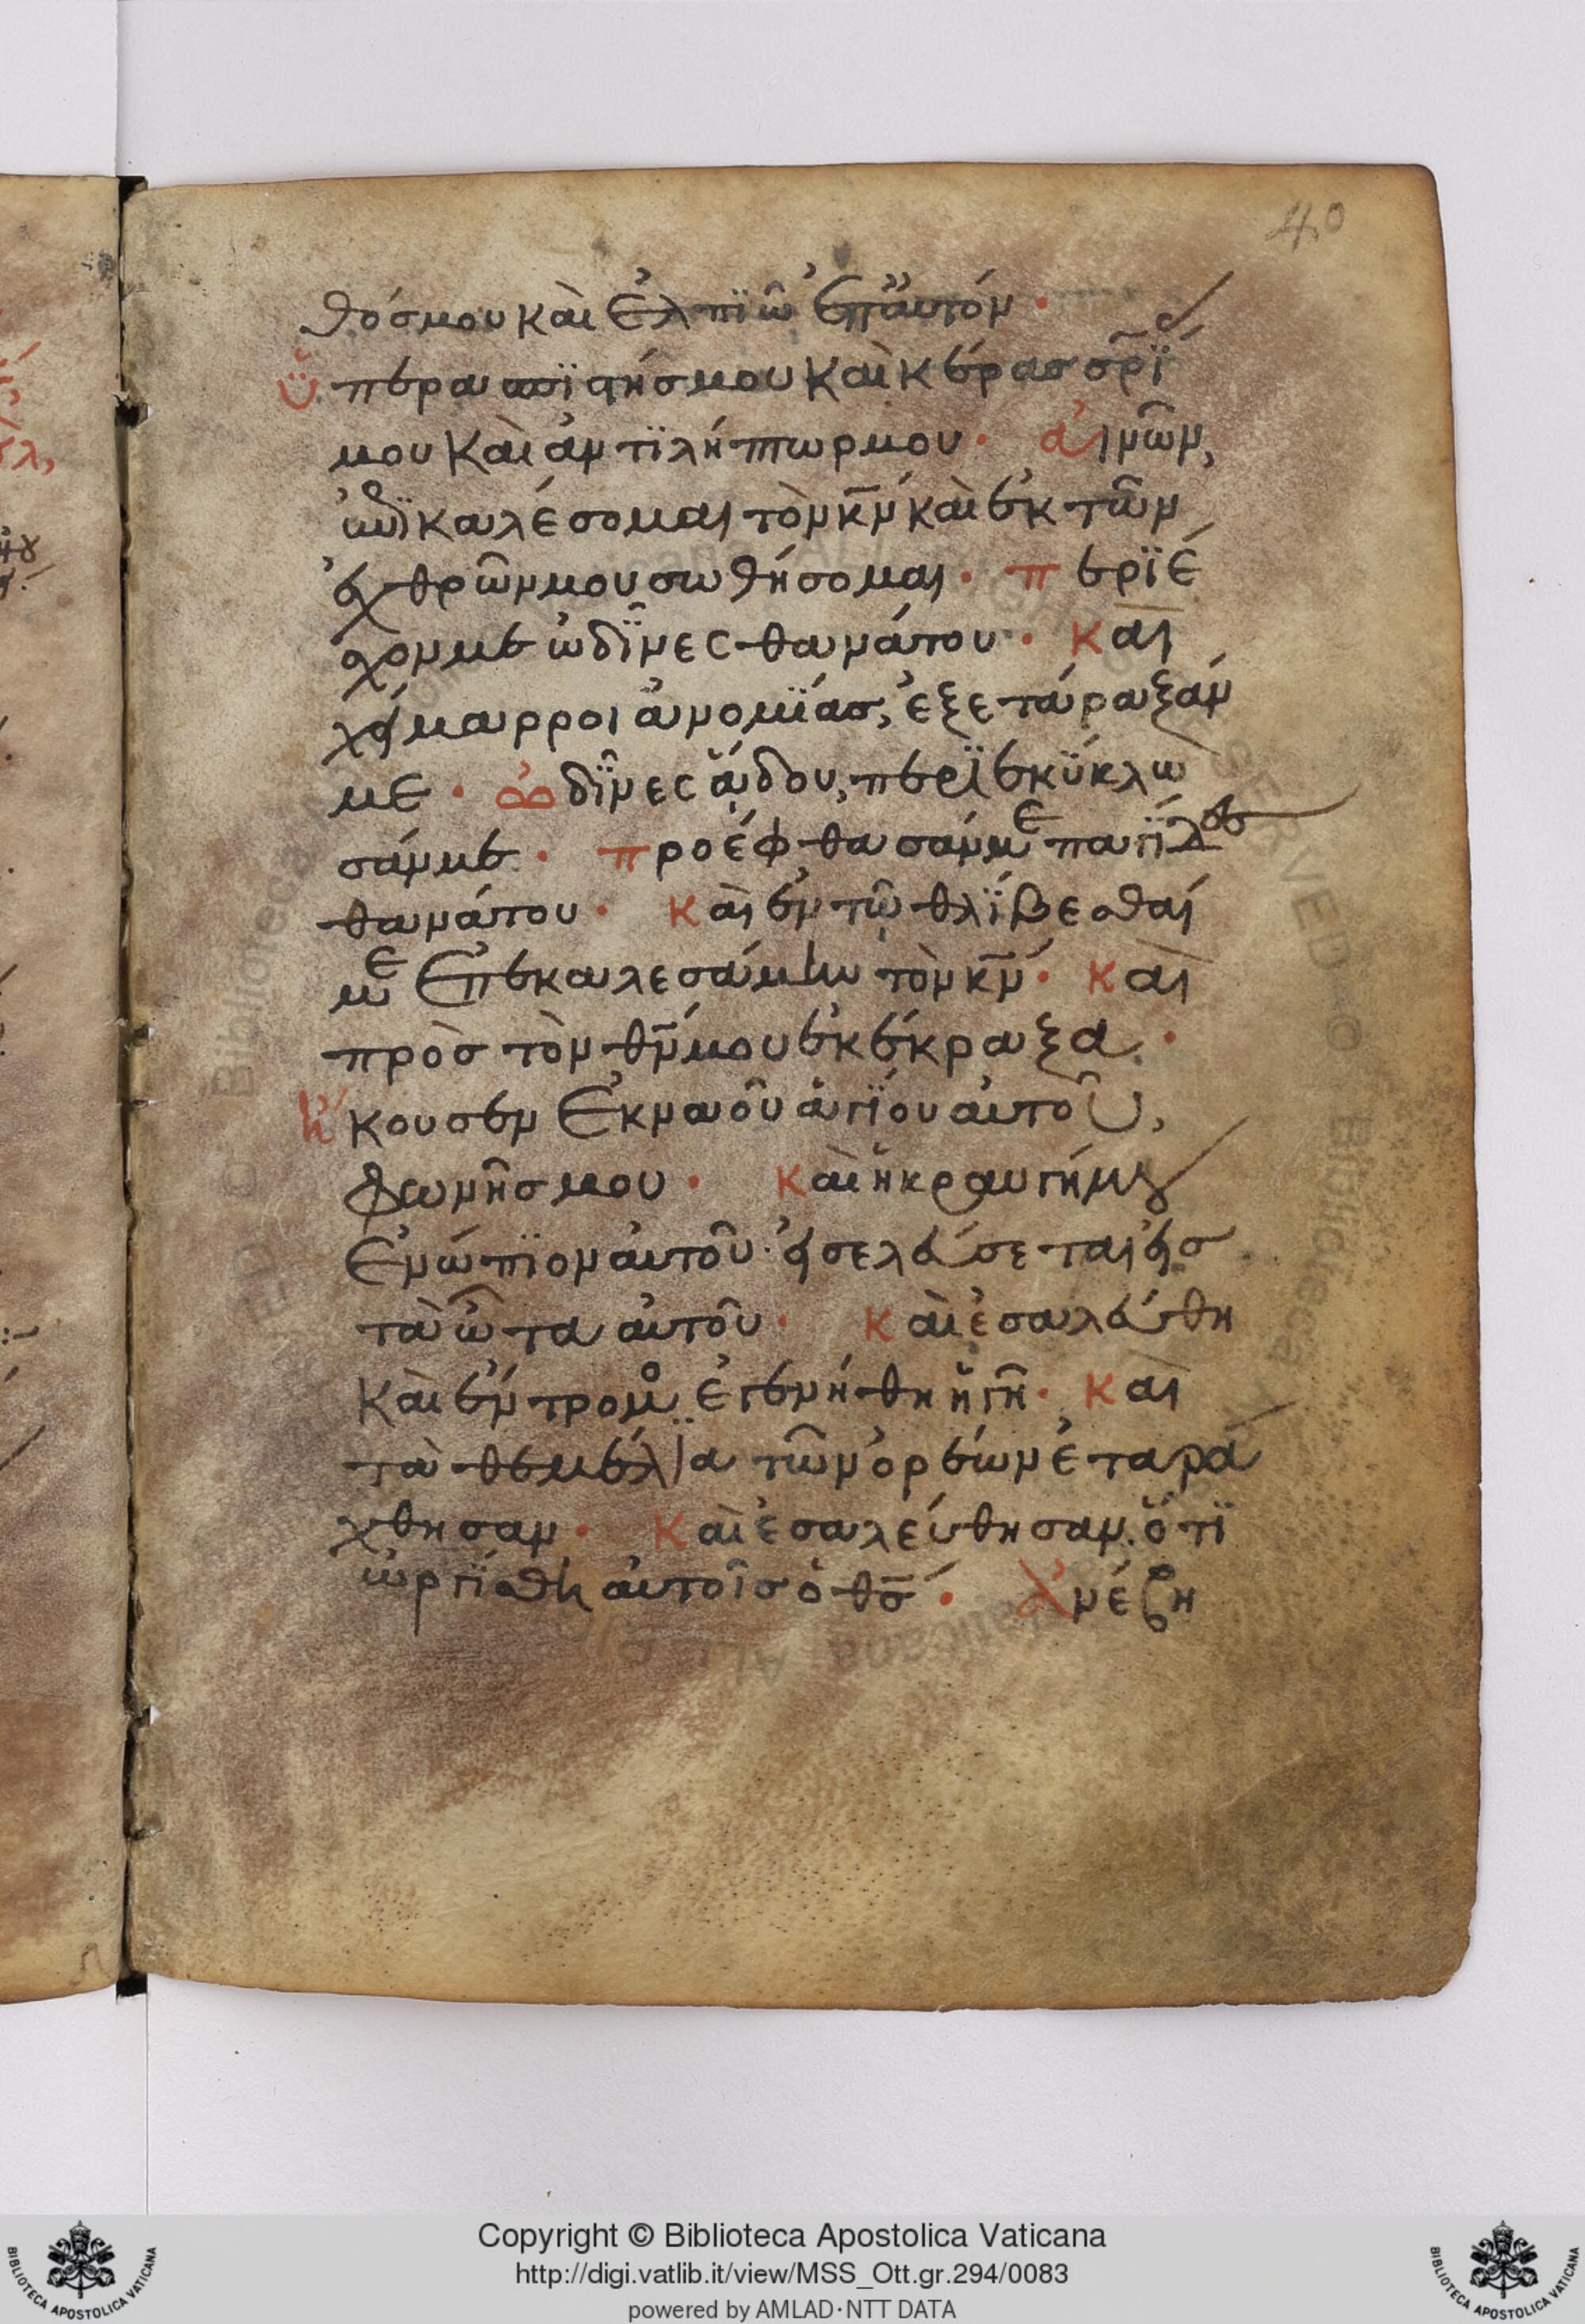 40
θόσ μου καὶ ἐλπϊῶ ἐπ' ἀυτόν·
ὑπεραασπϊστήσ μου καὶ κέρασ σρ̅ϊασ
μου καὶ ἀντϊλήπτωρ μου· ἀινῶν,
ἐπϊκαλέσομαι τὸν κ̅ν̅ καὶ ἐκ τῶν
ἐχθρῶν μου σωθήσομαι· περϊέ
χον με ὠδῖνες θανάτου· και
χείμαρροι ἀνομϊάσ, ἐξετάραξάν
με· ὠδῖνες ᾅδου, περϊεκύκλω
σάν με· προέφθασάν με παγΐδεσ
θανάτου· καὶ ἐν τῶ θλΐβεσθαί
με ἐπεκαλεσάμην τὸν κ̅ν̅· και
πρὸσ τὸν θ̅ν̅ μου ἐκέκραξα·
ἤκουσεν ἐκ ναοῦ ἁγΐου ἀυτοῦ,
φωνῆσ μου· καὶ ἡ κραυγή μου
ἐνώπϊον ἀυτοῦ· ἐισελέυσεται ἐισ
τὰ ὦτα ἀυτοῦ· καὶ ἐσαλέυθη
καὶ ἔντρομοσ ἐγενήθη ἡ γῆ· και
τὰ θεμέλϊα τῶν ὀρέων ἐταρά
χθησαν· καὶ ἐσαλεύθησαν. ὅτϊ
ὠργΐσθη ἀυτοῖσ ὁ θ̅σ̅· ἀνέβη
Copyright © Biblioteca Apostolica Vaticana
http://digi.vatlib.it/view/MSS_Ott.gr.294/0083
powered by AMLAD·NTT DATA
BIBLIOTECA APOSTOLICA VATICANA
BIBLIOTECA APOSTOLICA VATICANA